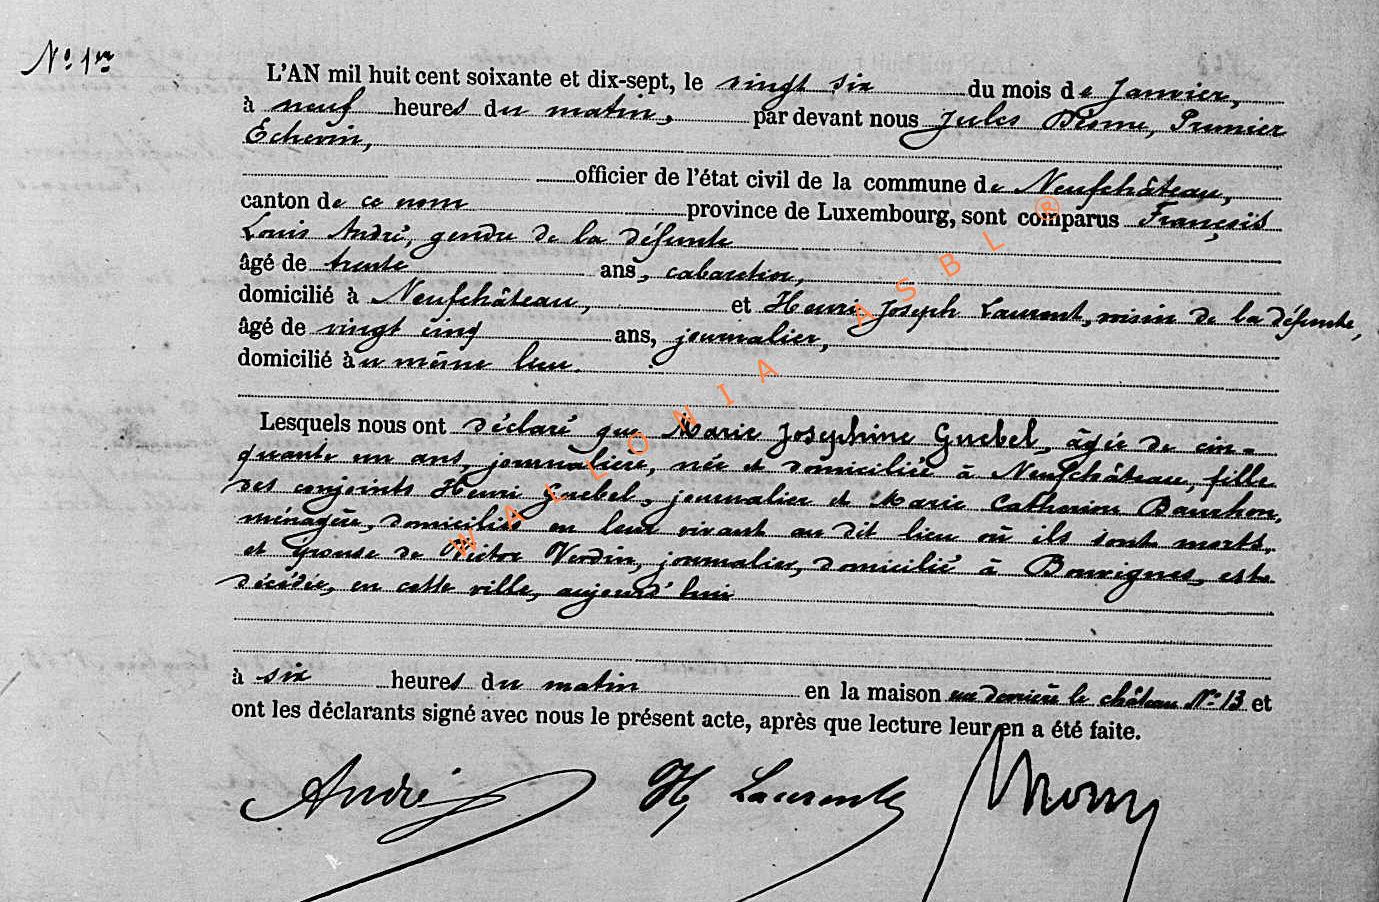 N° 1er
L'AN mil huit cent soixante et dix-sept, le vingt six du mois de Janvier,
à neuf heures du matin, par devant nous Jules Premier
Echevin,
officier de l'état civil de la commune de Neufchâteau,
canton de ce nom province de Luxembourg, sont comparus François
Louis André, gendre de la défunte
âgé de trente ans, cabaretier,
domicilié à Neufchâteau, et Henri Joseph Laurent, voisin de la défunte,
âgé de vingt cinq ans, journalier,
domicilié au même lieu.
Lesquels nous ont déclaré que Marie Joséphine Guebel, âgée de cin-
quante un ans, journalière, née et domiciliée à Neufchâteau, fille
des conjoints Henri Guebel, journalier et Marie Catherine Bourhon,
ménagère, domiciliés en leur vivant au dit lieu où ils sont morts,
et épouse de Victor Verdin, journalier, domicilié à Bouvignes, est
décédée, en cette ville, aujourd'hui
à six heures du matin en la maison sise derrière le château N° 13 et
ont les déclarants signé avec nous le présent acte, après que lecture leur en a été faite.
André H Laurent
WALLONIA ASBL ®